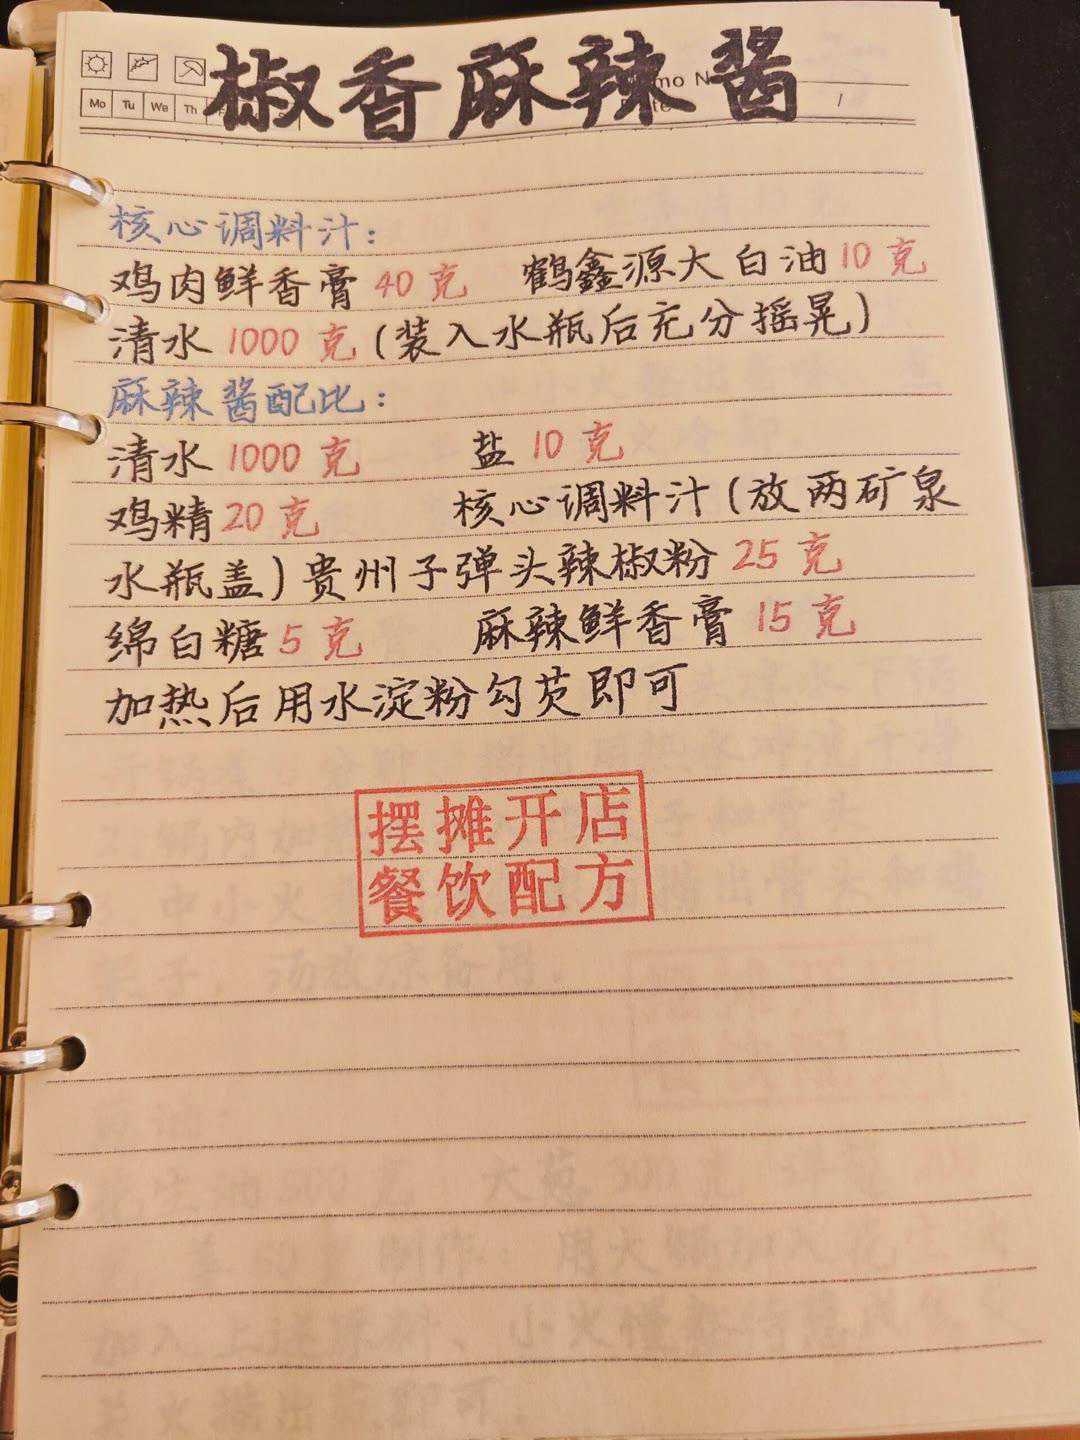 椒香麻辣酱
mo N
te
Mo Tu We Th
核心调料汁：
鸡肉鲜香膏40克 鹤鑫源大白油10克
清水1000克(装入水瓶后充分摇晃)
麻辣酱配比：
清水1000克 盐10克
鸡精20克 核心调料汁(放两矿泉
水瓶盖)贵州子弹头辣椒粉25克
绵白糖5克 麻辣鲜香膏15克
加热后用水淀粉勾芡即可
摆摊开店
餐饮配方